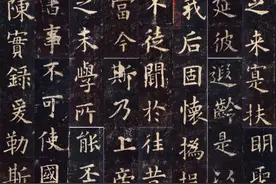 之來寔扶明聖
延彼遐齡是以
我后固懷撝挹
徒聞於往昔
當今斯乃上帝
之末學所能丕
書事不可使國
陳實錄爰勒斯